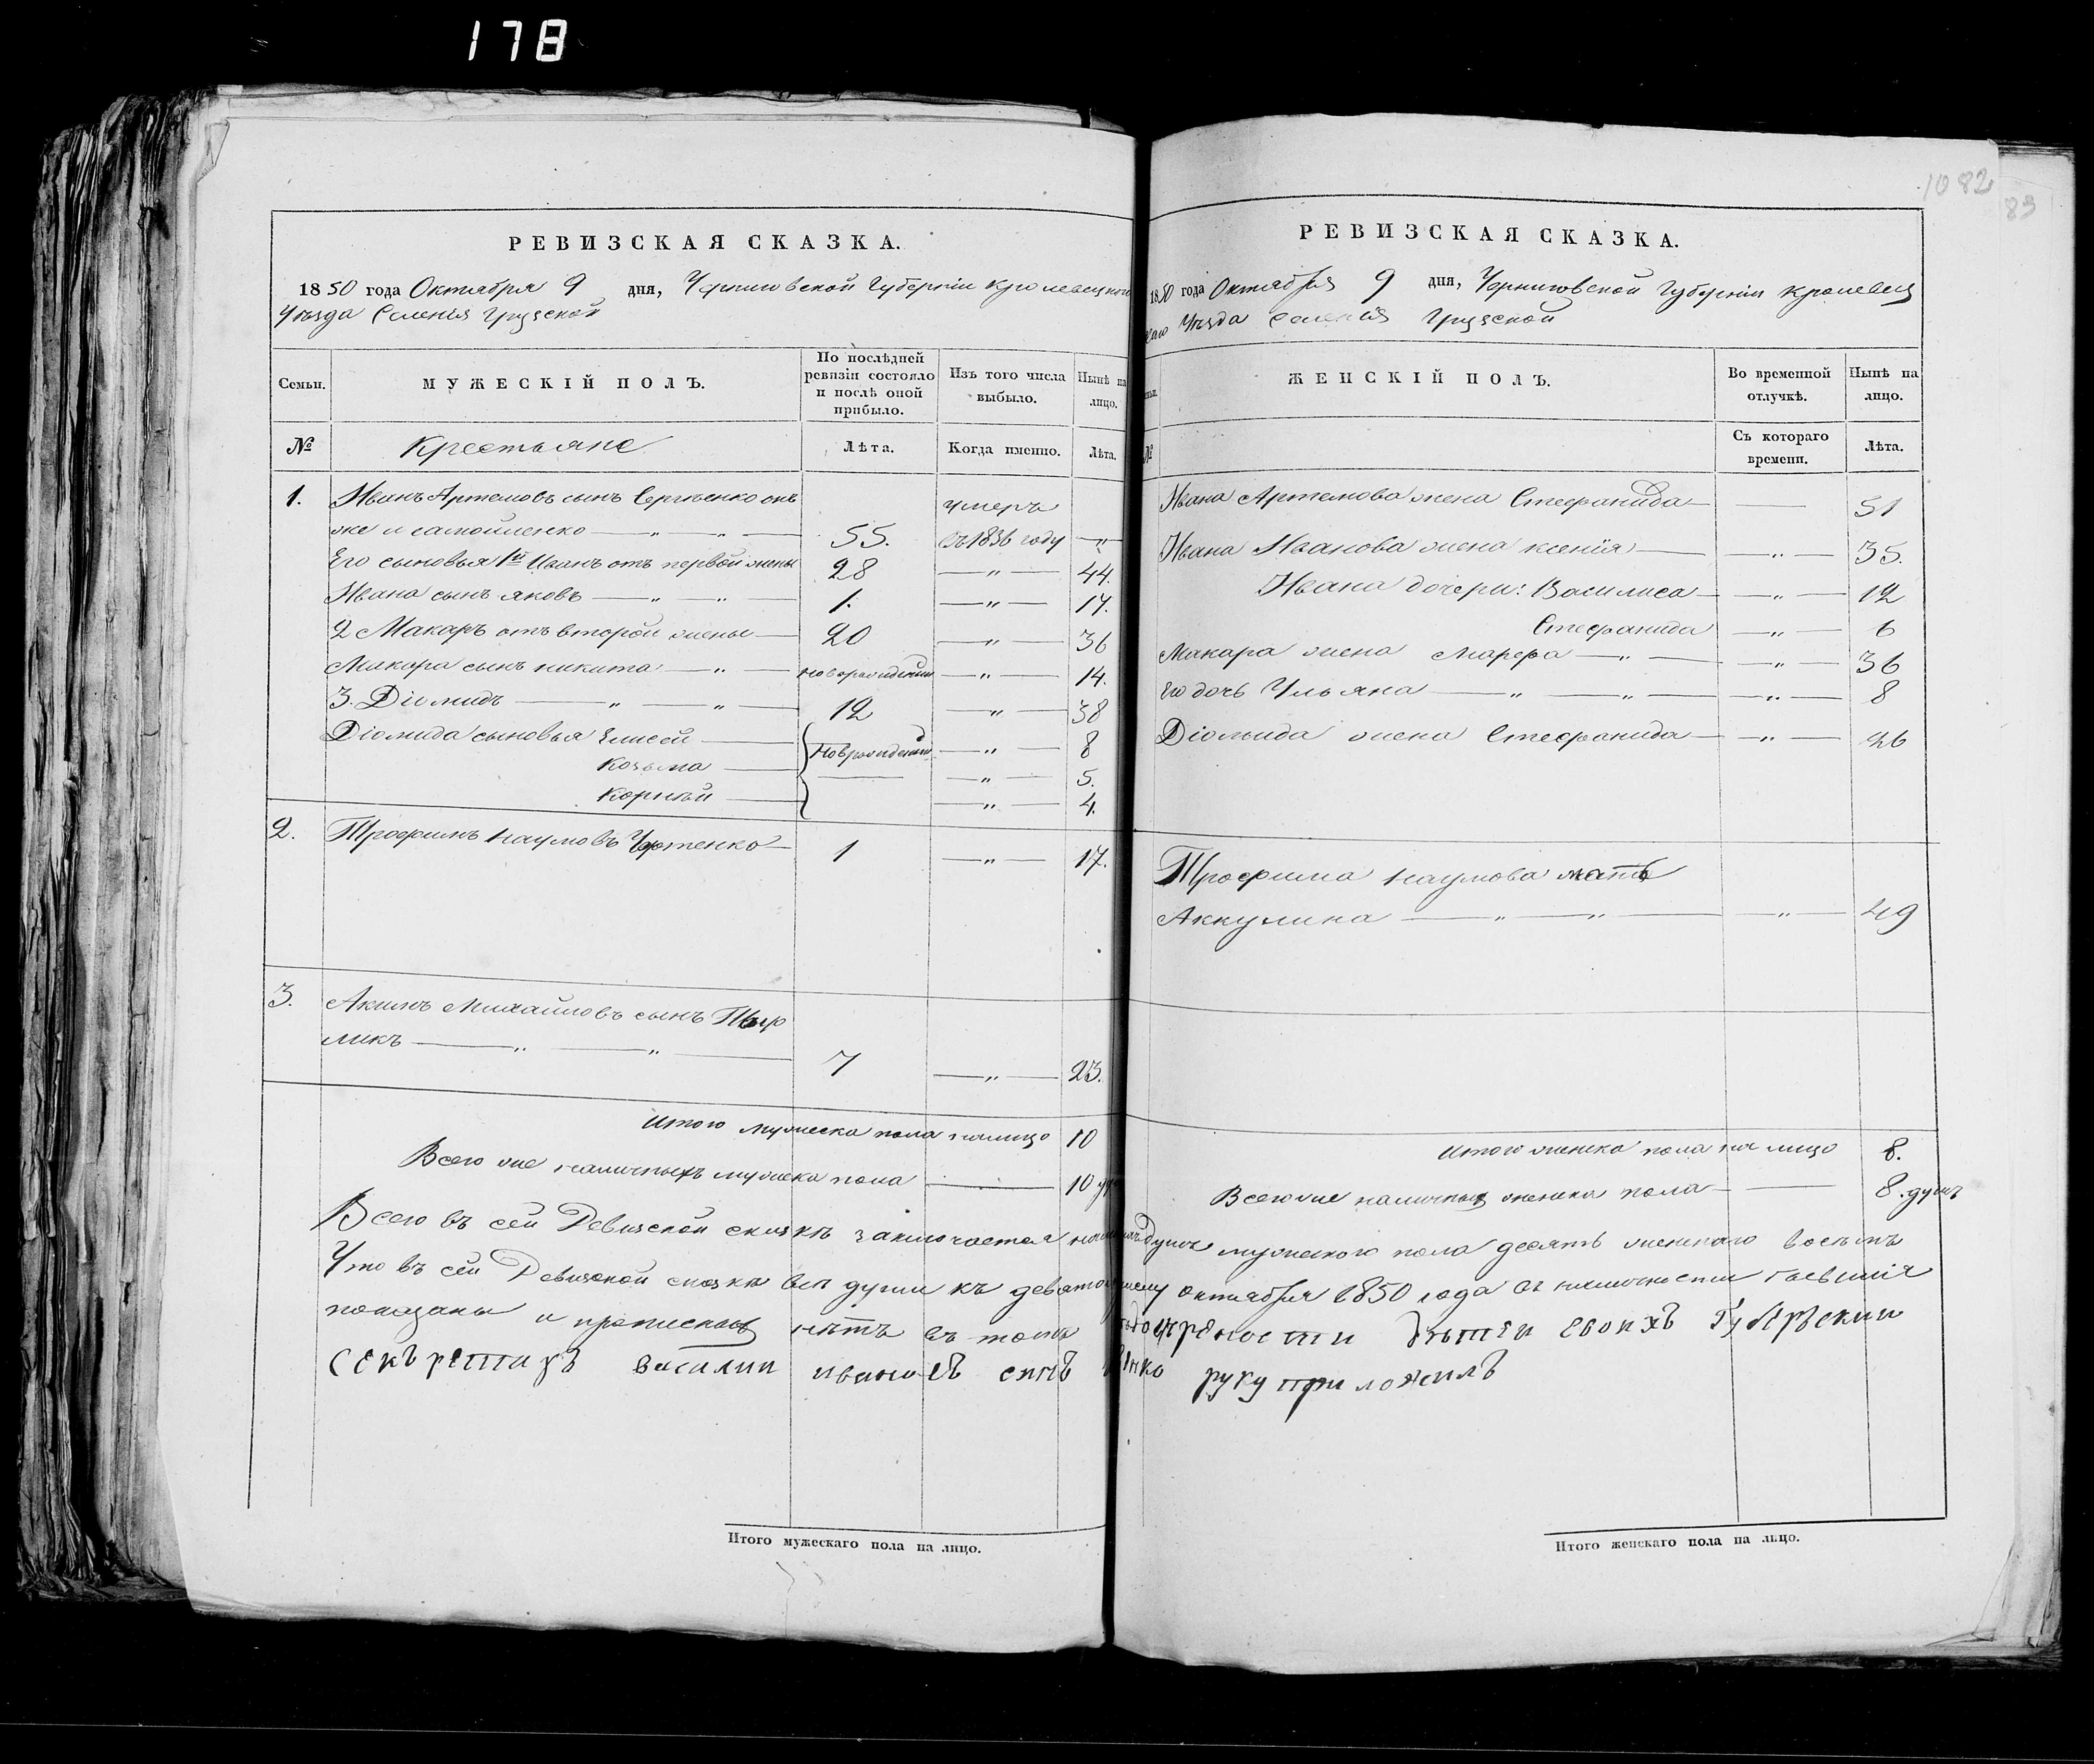 178
1082
83
РЕВИЗСКАЯ СКАЗКА.
1850 года Октября 9 дня, Черниговской Губерніи Кролевецкого
Уѣзда Селенія Грузской
Семьи.
МУЖЕСКІЙ ПОЛЪ.
По послѣдней ревизіи состояло и послѣ оной прибыло.
Изъ того числа выбыло.
Нынѣ на лицо.
№
Крестьяне
Лѣта.
Когда именно.
Лѣта.
1. Иванъ Артемовъ сынъ Сергѣенко онъ умеръ
же и самойленко — „ — „ — 55. въ 1836 году — „
Его сыновья 1й Иванъ отъ первой жены 28 — „ — 44.
Ивана сынъ яковъ — „ — „ — 1. — „ — 17.
2 Макаръ отъ второй жены — 20 — „ — 36
Макара сынъ никита — „ — новорожденный — „ — 14.
3. Діомидъ — „ — „ — 12 — „ — 38
Діомида сыновья Елисей — Новорожденны — „ — 8
Козьма — — „ — 5.
Корнѣй — — „ — 4.
2. Трофимъ Наумовъ Чортенко — 1 — „ — 17.
3. Акимъ Михайловъ сынъ Тыр
ликъ — „ — „ — 7 — „ — 23.
Итого мужеска пола налицо 10
Всего же наличныхъ мужеска пола — 10
РЕВИЗСКАЯ СКАЗКА.
1850 года Октября 9 дня, Черниговской Губерніи Кролевец
каго Уѣзда Селенія Грузской
ЖЕНСКІЙ ПОЛЪ.
Во временной отлучкѣ.
Нынѣ на лицо.
№
Съ котораго времени.
Лѣта.
Ивана Артемова жена Стефанида — — 51
Ивана Иванова жена ксенія — — „ — 35.
Ивана дочери: Василиса — — „ — 12
Стефанида — „ — 6
Макара жена Марфа — „ — — „ — 36
Его дочь Ульяна — „ — „ — — „ — 8
Діомида жена Стефанида — — „ — 26
Трофима Наумова мать
Аккулина — „ — „ — — „ — 49
Итого женска пола на лицо 8.
Всего же наличныхъ женска пола — — 8. душъ
Всего въ сей Ревизской сказкѣ заключается душъ мужескаго пола десять женскаго восемь
Что въ сей Ревизской сказкѣ всѣ души къ девятому октября 1850 года въ наличности бывшія
показаны и прописныхъ нѣтъ въ томъ дѣтей своихъ Губернскии
Секъретаръ василии ивановъ сынъ руку приложилъ
Итого мужескаго пола на лицо.
Итого женскаго пола на лицо.